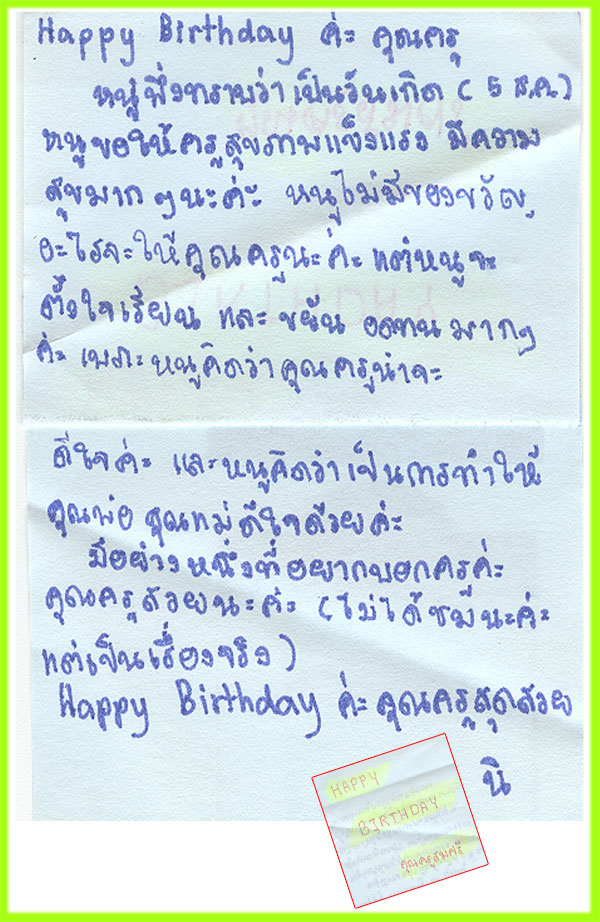 Happy Birthday ค่ะ คุณครู
หนูพึ่งทราบว่าเป็นวันเกิด ( 5 ส.ค.)
หนูขอให้ครูสุขภาพแข็งแรง มีความ
สุขมาก ๆ นะค่ะ หนูไม่มีของขวัญ
อะไรจะให้คุณครูนะค่ะ แต่หนูจะ
ตั้งใจเรียน และ ขยัน อดทน มากๆ
ค่ะ เพราะหนูคิดว่าคุณครูน่าจะ
ดีใจค่ะ และหนูคิดว่าเป็นการทำให้
คุณพ่อ คุณแม่ดีใจด้วยค่ะ
มีอย่างหนึ่งที่อยากบอกครูค่ะ
คุณครูสวยนะค่ะ ( ไม่ได้ชมนะค่ะ
แต่เป็นเรื่องจริง )
Happy Birthday ค่ะ คุณครูสุดสวย
นิ
HAPPY
BIRTHDAY
คุณครูสมศรี